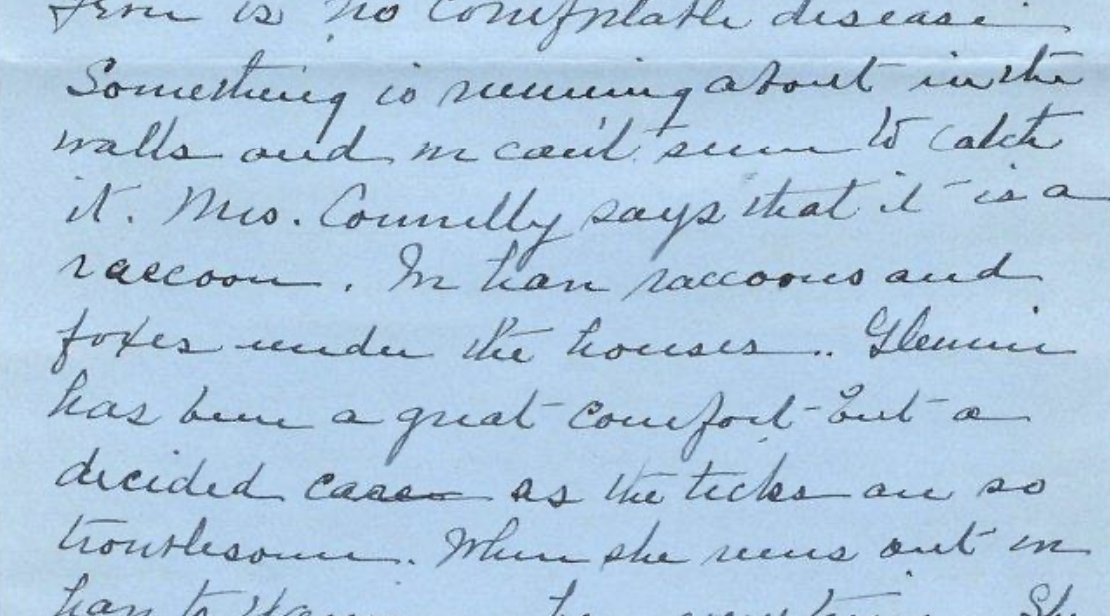 is no comfortable disease
Something is running about in the
walls and we can't seem to catch
it. Mrs. Connelly says that it is a
raccoon. We have raccoons and
foxes under the houses..
has been a great comfort but a
decided care as the ticks are so
troublesome. When she runs out we
have to